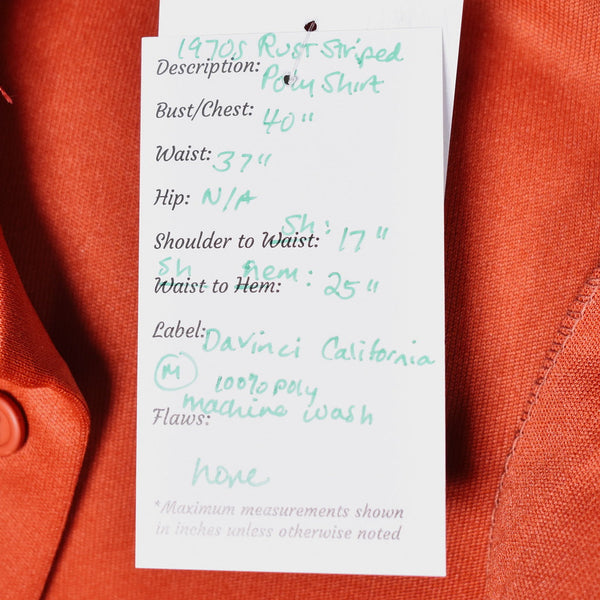 1970s Rust Striped
Description: Poly Shirt
Bust/Chest: 40"
Waist: 37"
Hip: N/A
Shoulder to Waist: Sh: 17"
Waist to Hem: Sh hem: 25"
Label: Davinci California
M 100% poly
machine wash
Flaws:
none
*Maximum measurements shown
in inches unless otherwise noted